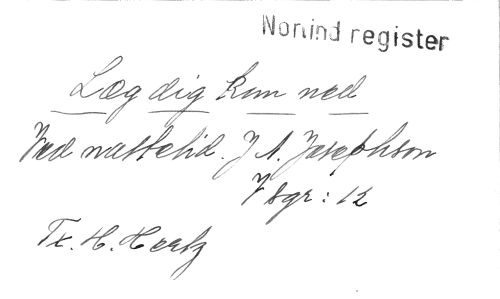 Norlind register
Læg dig kun ned
Ved nattetid. J A. Josephson
Vsgr: 12
Tx. H. Hertz